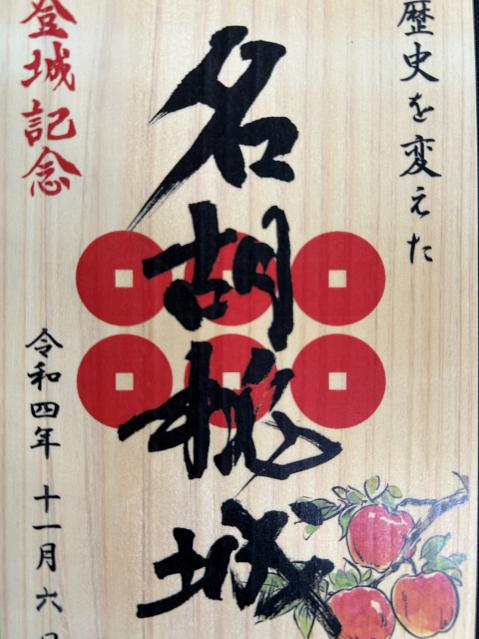 歴史を変えた
名胡桃城
登城記念
令和四年 十一月 六日